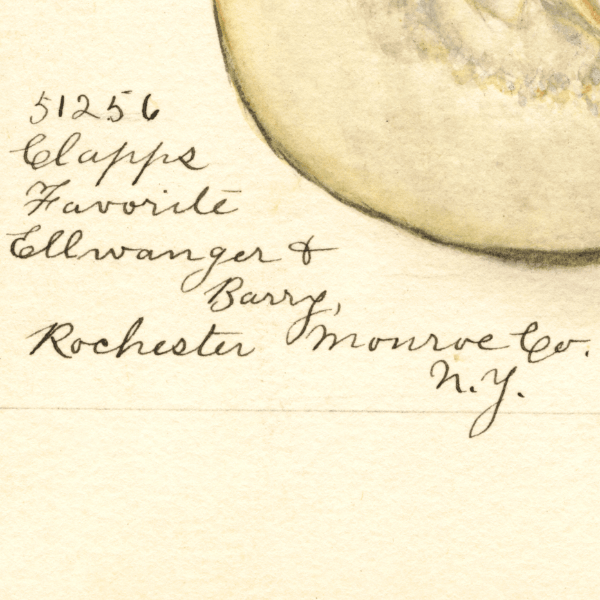 51256
Clapps
Favorite
Ellwanger &
Barry,
Rochester Monroe Co.
N.Y.